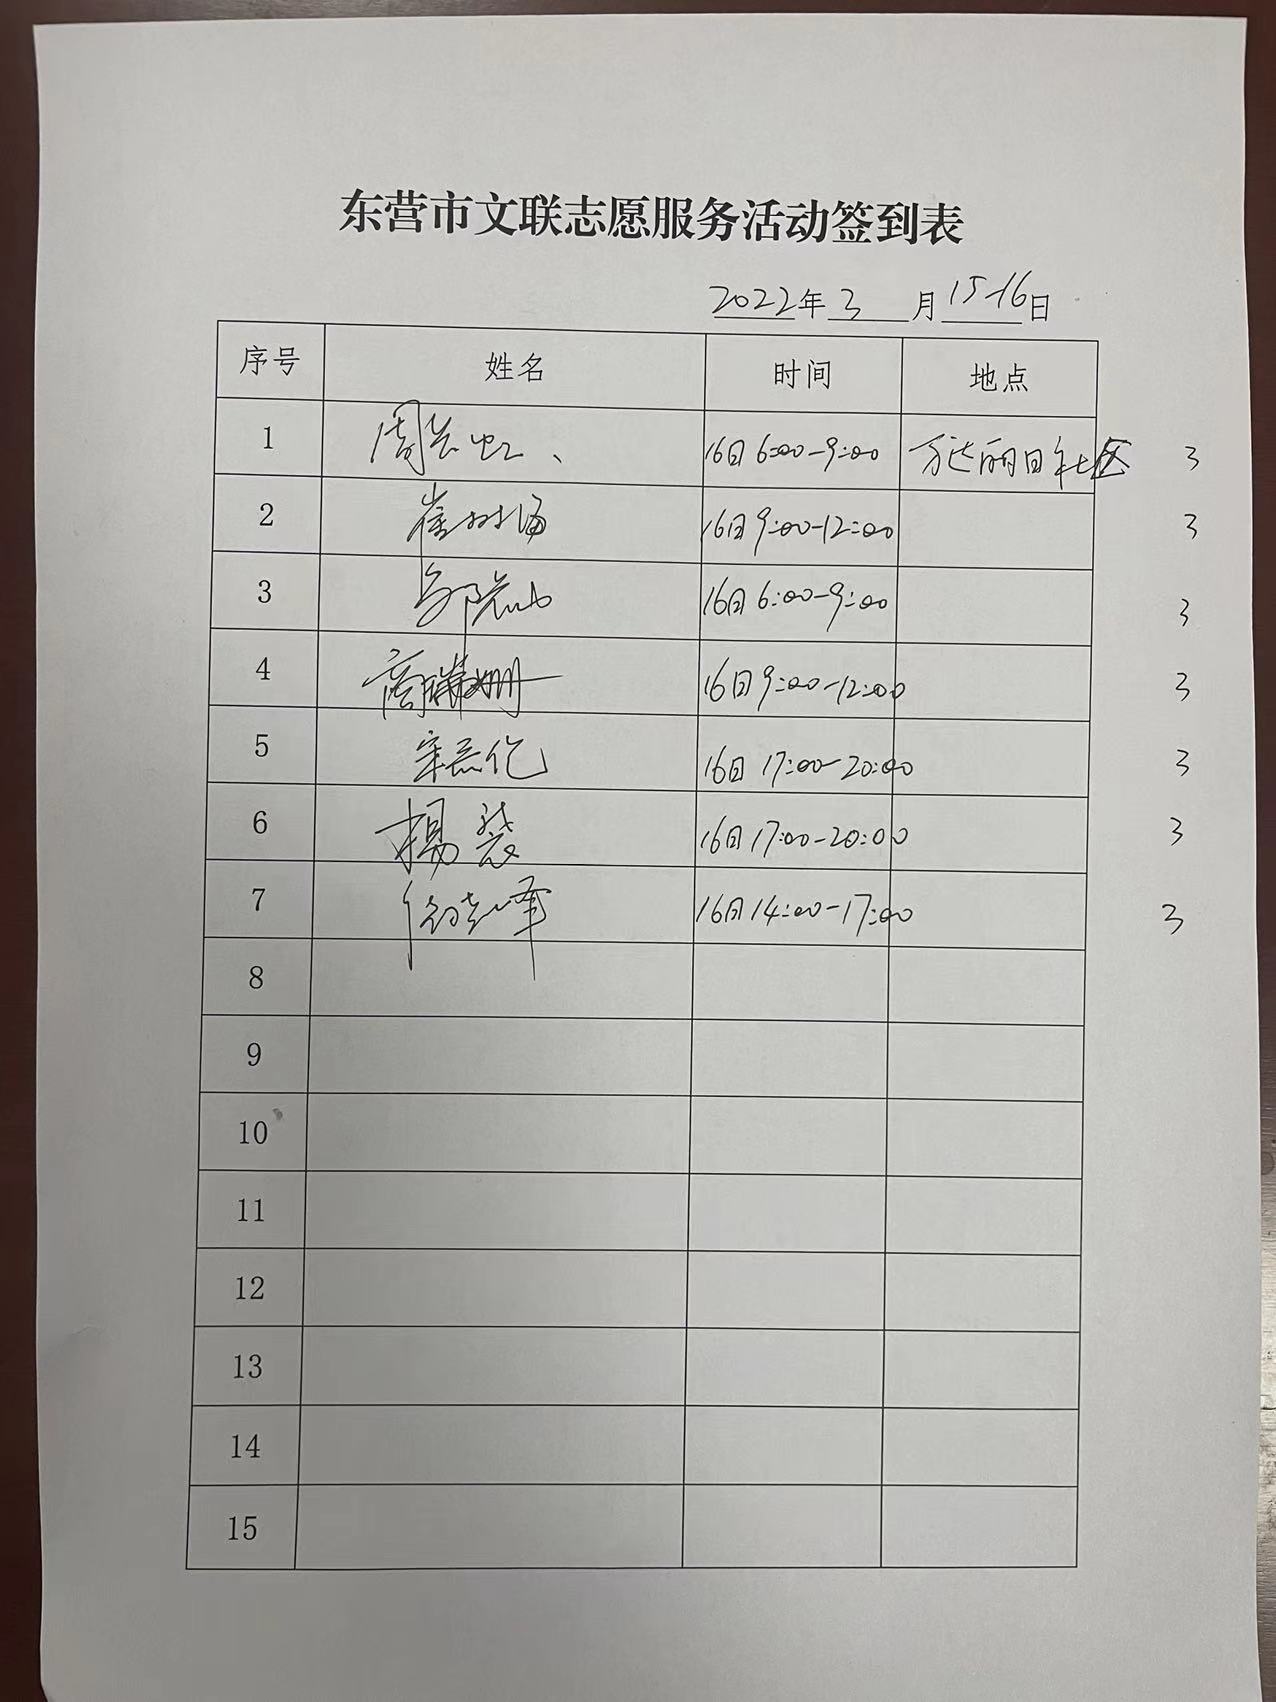 东营市文联志愿服务活动签到表
2022年3月15-16日
序号 姓名 时间 地点
1 周长虹、 16日6:00-9:00 万达丽日社区 3
2 崔树海 16日9:00-12:00 3
3 16日6:00-9:00 3
4 商瑞娜 16日9:00-12:00 3
5 16日17:00-20:00 3
6 杨慧 16日17:00-20:00 3
7 16日14:00-17:00 3
8
9
10
11
12
13
14
15